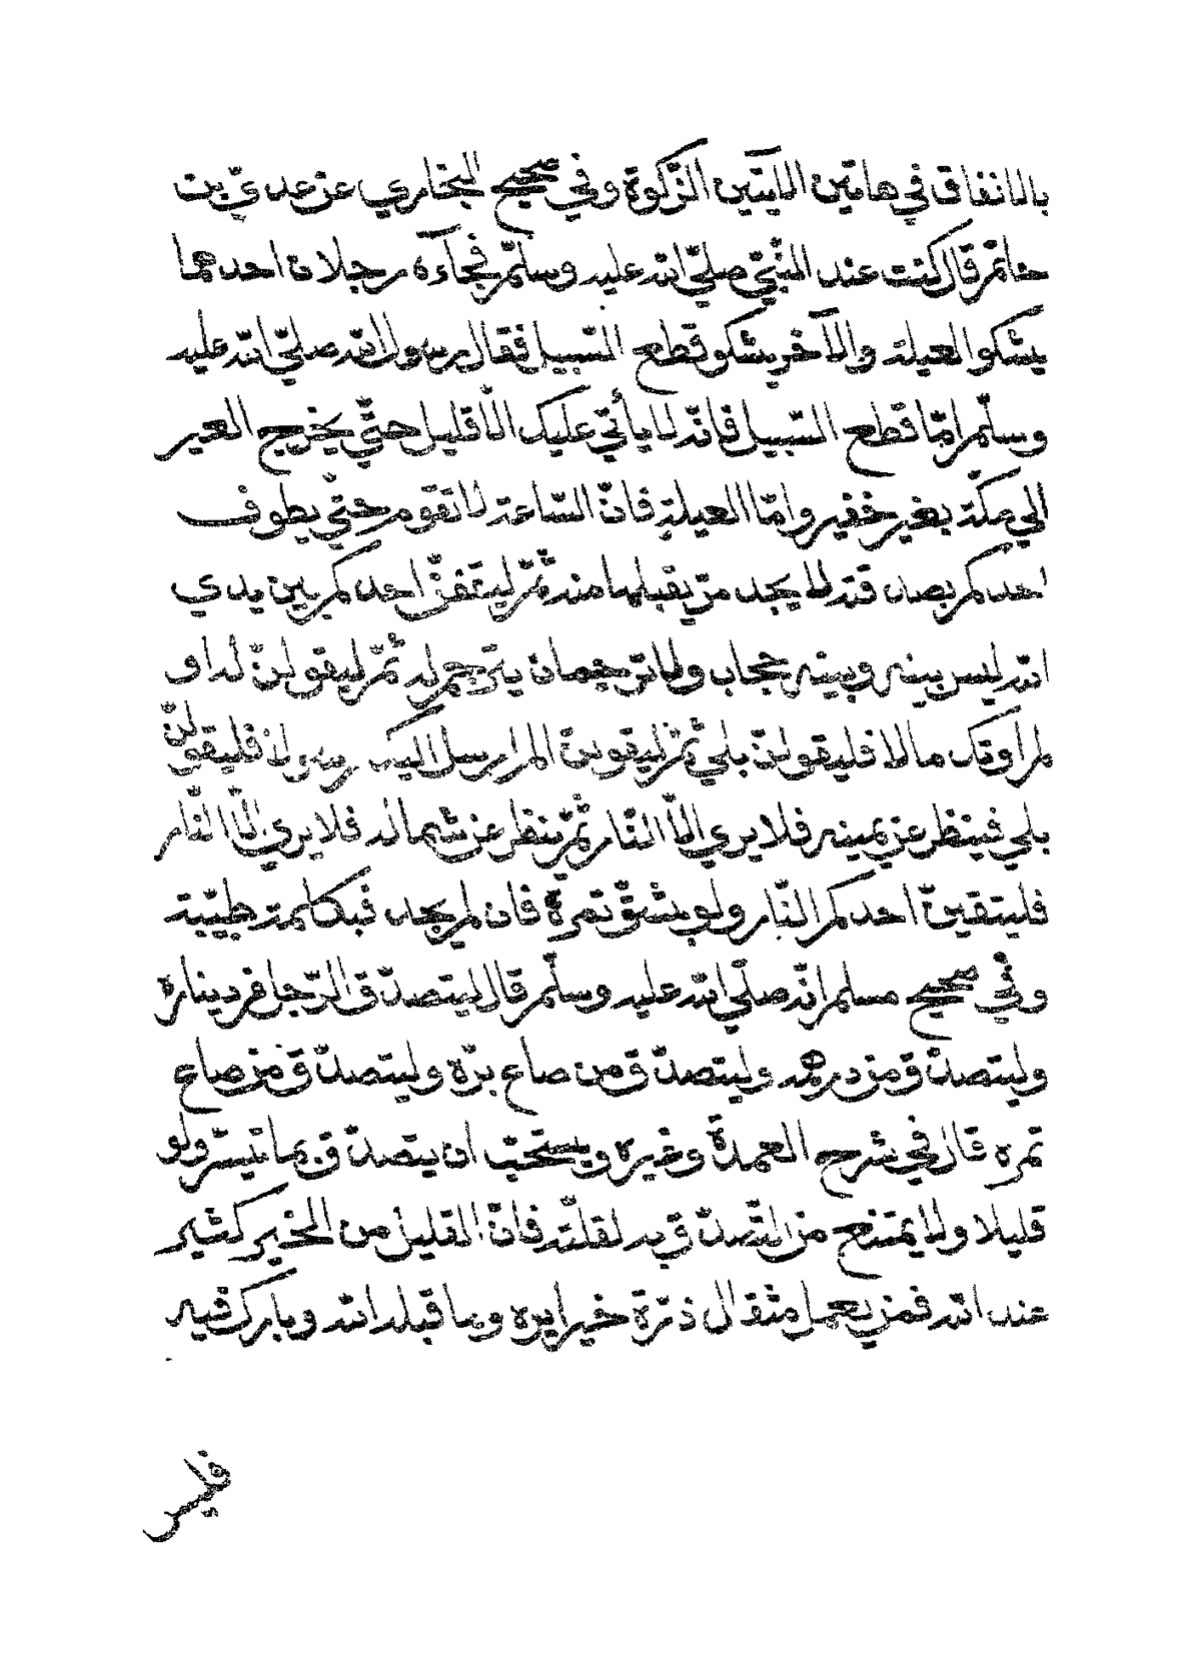 بالانفاق في هاتين الآيتين الزكوة وفي صحيح البخاري عن عديّ بن
حاتم قال كنت عند النبيّ صلّي الله عليه وسلّم فجآءه رجلان احدهما
يشكوا العيلة والآخر يشكو قطع السّبيل فقال رسول الله صلّي الله عليه
وسلّم امّا قطع السّبيل فانّه لا يأتي عليك الّا قليل حتّي يخرج العير
الي مكّة بغير خفير وامّا العيلة فانّ السّاعة لا تقوم حتّي يطوف
احدكم بصدقته لا يجد من يقبلها منه ثمّ ليقفنّ احدكم بين يدي
الله ليس بينه وبينه حجاب ولا ترجمان يترجم له ثمّ ليقولنّ له او
لم اوتك مالا فليقولنّ بلي ثمّ ليقولنّ الم ارسل اليك رسولا فليقولنّ
بلي فينظر عن يمينه فلا يري الّا النّار ثمّ ينظر عن شماله فلا يري الّا النّار
فليتقينّ احدكم النّار ولو بشقّ تمرة فان لم يجد فبكلمة طيّبة
وفي صحيح مسلم انّه صلّي الله عليه وسلّم قال ليتصدّق الرّجل من ديناره
وليتصدّق من درهمه وليتصدّق من صاع برّه وليتصدّق من صاع
تمره قال في شرح العمدة وغيره ويستحبّ ان يتصدّق بما تيسّر ولو
قليلا ولا يمتنع من التّصدّق به لقلّته فانّ القليل من الخير كثير
عند الله فمن يعمل مثقال ذرّة خيرا يره وما قبله الله وبارك فيه
فليس